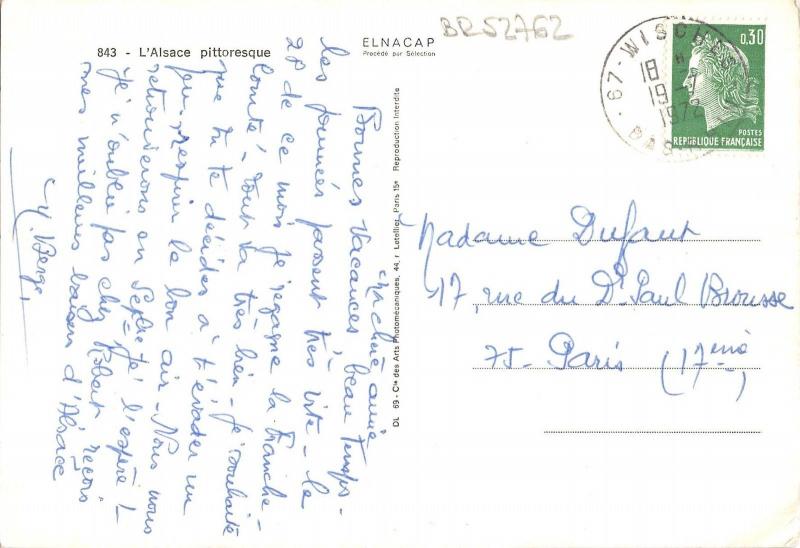 BR52762
843 - L'Alsace pittoresque
ELNACAP
Procédé par Sélection
67 - WISCHES
18 H
19 -7
1972
BAS-
0,30
POSTES
REPUBLIQUE FRANÇAISE
Ma chère amie
Bonnes vacances, beau temps -
les journées passent très vite - le
28 de ce mois je regagne la Franche-
Comté - tout va très bien - Je souhaite
que tu te décides à t'évader un
peu respirer le bon air - Nous nous
retrouverons en Septbre je l'espère ! -
Je n'oublie pas cher Robert reçois
mes meilleurs baisers d'Alsace
Y. Berge
DL 69 - Cie des Arts Photomécaniques, 44, r Letellier, Paris 15e Reproduction Interdite
Madame Dufaut
17, rue du Dr Paul Brousse
75 - Paris (17ème)